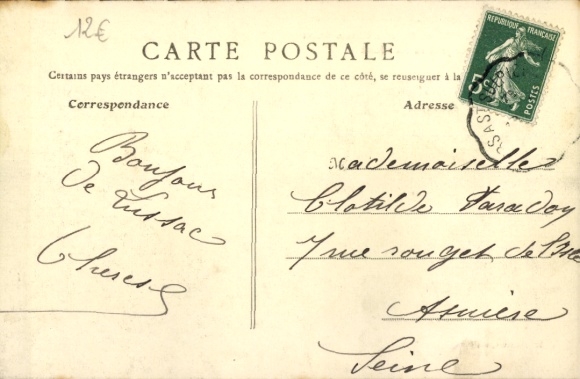 12€
CARTE POSTALE
Certains pays étrangers n'acceptant pas la correspondance de ce côté, se renseigner à la
Correspondance
Adresse
REPUBLIQUE FRANÇAISE
5
POSTES
Bonjour
de Lussac
Therese
Mademoiselle
Clotilde
7 rue rouget de l'Isle
Asnière
Seine